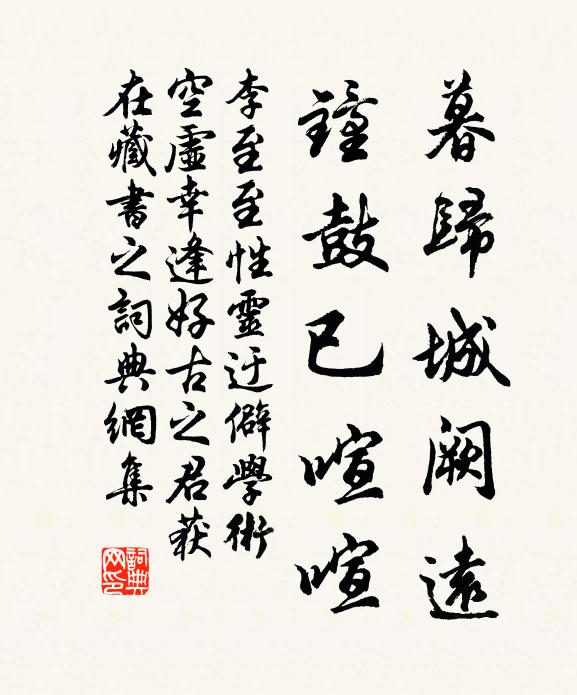 暮歸城闕遠
鐘鼓已喧喧
李至至性靈迂僻學術
空虛幸逢好古之君荻
在藏書之詞典網集
詞典網印